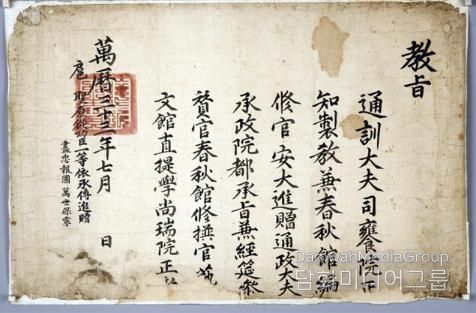 教旨
通訓大夫司饔院正
知製教兼春秋館編
修官安大進贈通政大夫
承政院都承旨兼經筵參
贊官春秋館修撰官藝
文館直提學尚瑞院正者
萬曆三十三年七月 日
扈聖原從功臣一等依承傳追贈
盡忠報國 萬世保寧
MediaGroup
미디어그룹